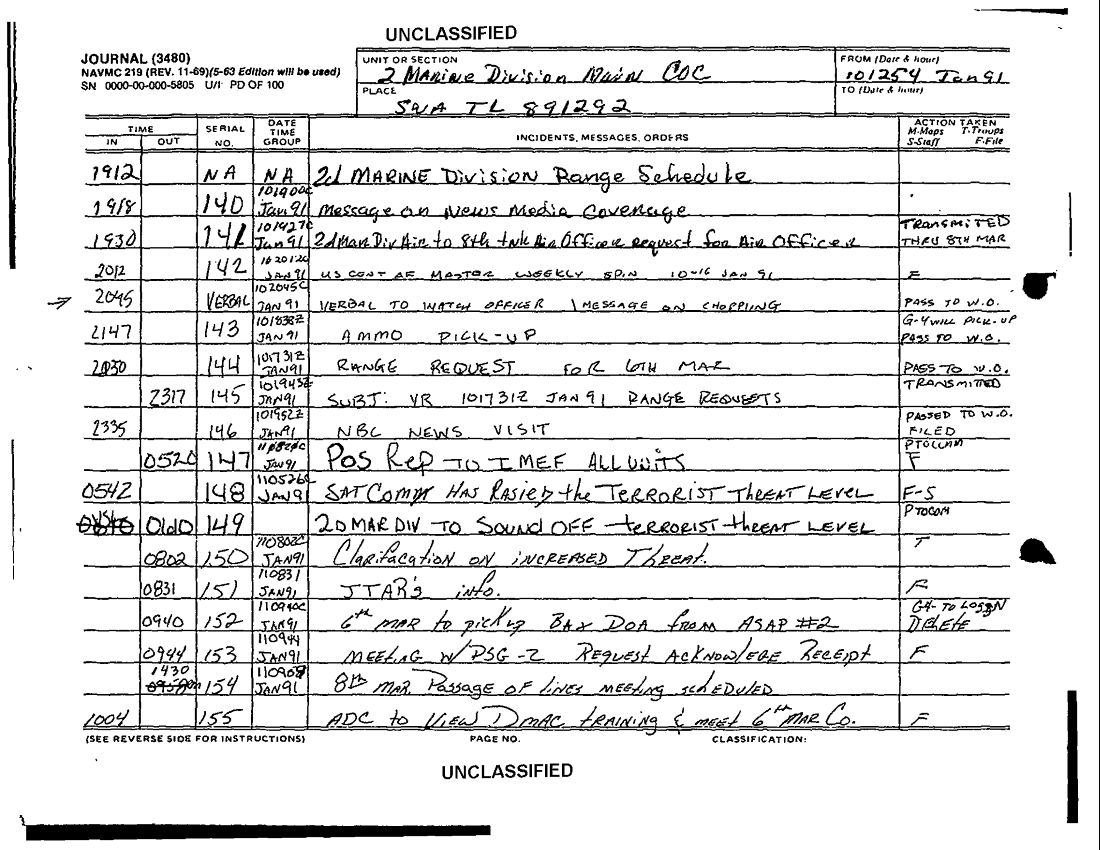 UNCLASSIFIED
JOURNAL (3480)
NAVMC 219 (REV. 11-69)(5-63 Edition will be used)
SN 0000-00-000-5805 U/I PD OF 100
UNIT OR SECTION
2 Marine Division Main COC
PLACE
SWA TL 891292
FROM (Date & hour)
101254 Jan 91
TO (Date & hour)
TIME
IN OUT
SERIAL NO.
DATE TIME GROUP
INCIDENTS, MESSAGES, ORDERS
ACTION TAKEN
M-Maps T-Troups
S-Staff F-File
1912 NA NA 2d MARINE Division Range Schedule
1918 140 101900C Jan 91 Message on News Media Coverage
1930 141 101927C Jan 91 2dMarDiv Air to 8th tnk Air Officer request for Air Officer TRANSMITTED THRU 8TH MAR
2012 142 102012C JAN 91 US CENT AF MASTER WEEKLY SPIN 10-16 JAN 91 F
2045 VERBAL 102045C JAN 91 VERBAL TO WATCH OFFICER 1 MESSAGE ON CHOPPING PASS TO W.O.
2147 143 101838Z JAN 91 AMMO PICK-UP G-4 WILL PICK-UP PASS TO W.O.
2030 144 101731Z JAN 91 RANGE REQUEST FOR 6TH MAR PASS TO W.O.
2317 145 101943Z JAN 91 SUBJ: VR 101731Z JAN 91 RANGE REQUESTS TRANSMITTED
2335 146 101952Z JAN 91 NBC NEWS VISIT PASSED TO W.O. FILED
0520 147 JAN 91 Pos Rep to I MEF ALL UNITS F
0542 148 110526C JAN 91 SATComm Has Rasied the TERRORIST THREAT LEVEL F-S
149 2D MAR DIV TO SOUND OFF terrorist threat LEVEL
0802 150 110802C JAN 91 Clarifacation on increased Threat. T
0831 151 110831 JAN 91 JTAR's info. F
0940 152 110940C JAN 91 6th mar to pickup Bax DOA from ASAP #2 DELETE
0944 153 110944 JAN 91 MEETING W/PSG-2 Request Acknowlege Receipt F
1430 154 110908 JAN 91 8th mar. Passage of lines meeting scheduled
1004 155 ADC to View DMAC training & meet 6th MAR Co. F
(SEE REVERSE SIDE FOR INSTRUCTIONS) PAGE NO. CLASSIFICATION:
UNCLASSIFIED